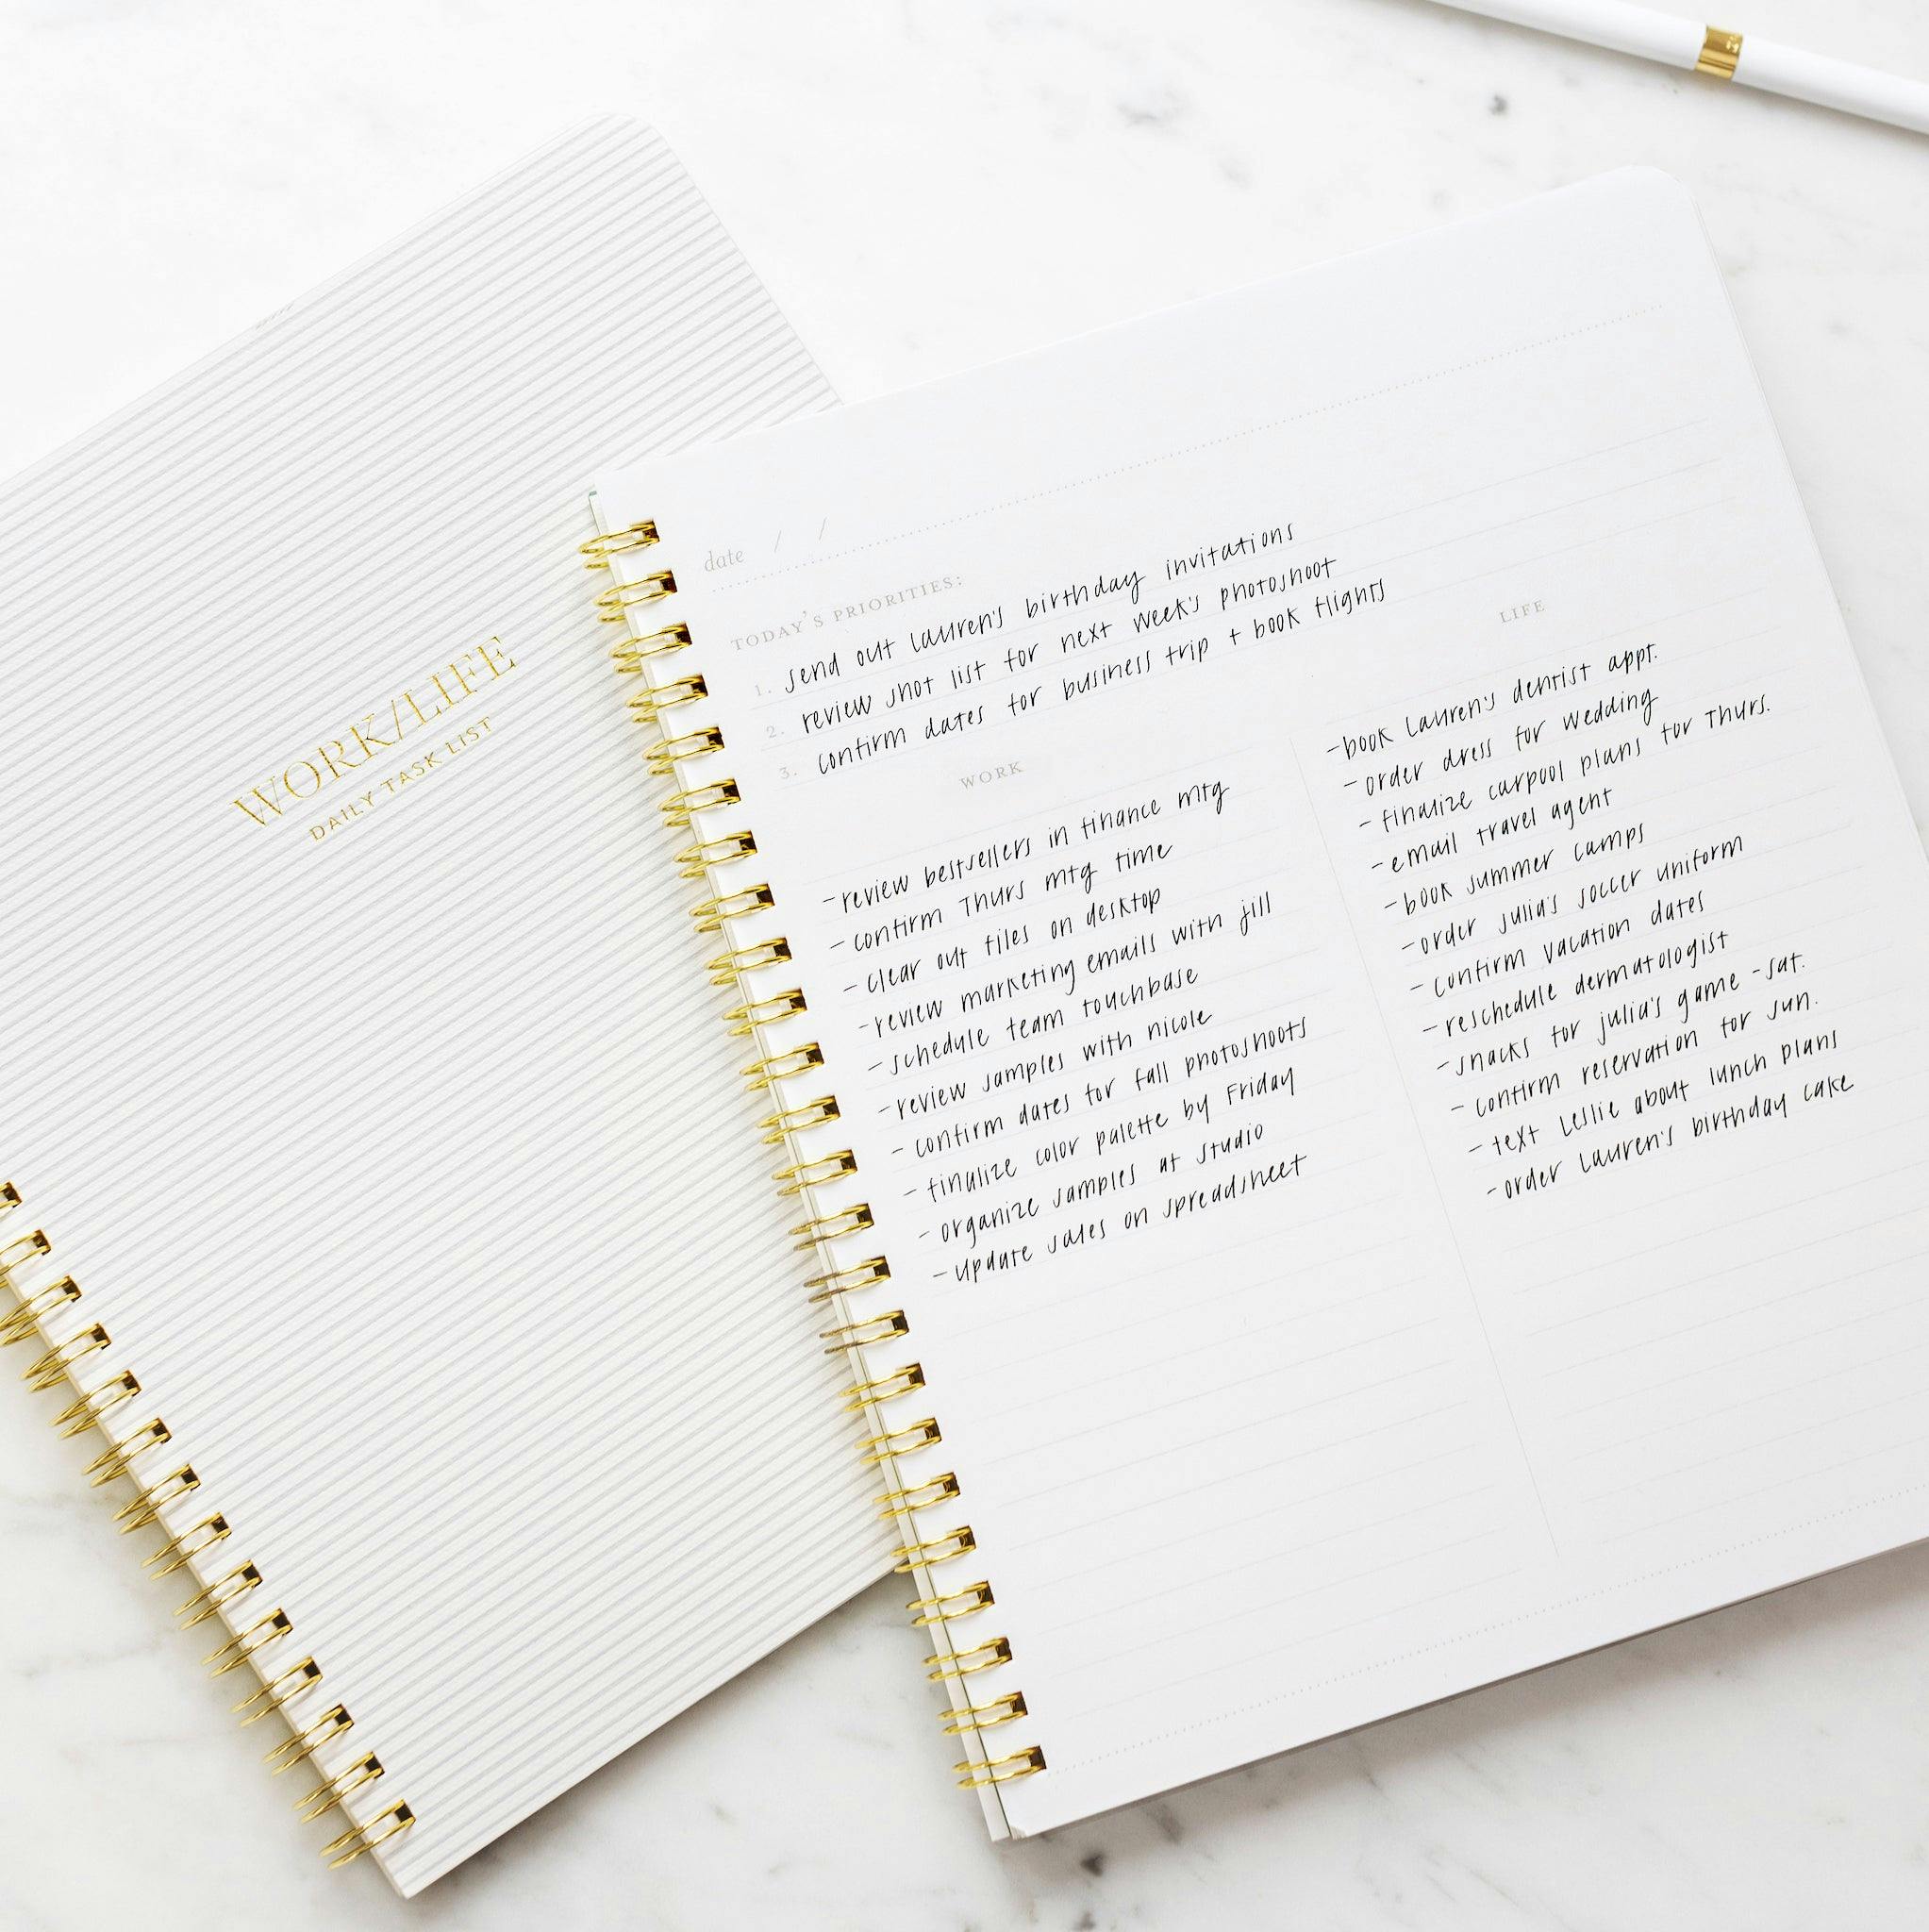 WORK/LIFE
DAILY TASK LIST
date / /
TODAY'S PRIORITIES:
1. send out lauren's birthday invitations
2. review shot list for next week's photoshoot
3. confirm dates for business trip + book flights
WORK
- review bestsellers in finance mtg
- confirm Thurs mtg time
- clear out files on desktop
- review marketing emails with jill
- schedule team touchbase
- review samples with nicole
- confirm dates for fall photoshoots
- finalize color palette by Friday
- organize samples at studio
- update sales on spreadsheet
LIFE
- book Lauren's dentist appt.
- order dress for wedding
- finalize carpool plans for Thurs.
- email travel agent
- book summer camps
- order julia's soccer uniform
- confirm vacation dates
- reschedule dermatologist
- snacks for julia's game - sat.
- confirm reservation for sun.
- text Leslie about lunch plans
- order Lauren's birthday cake